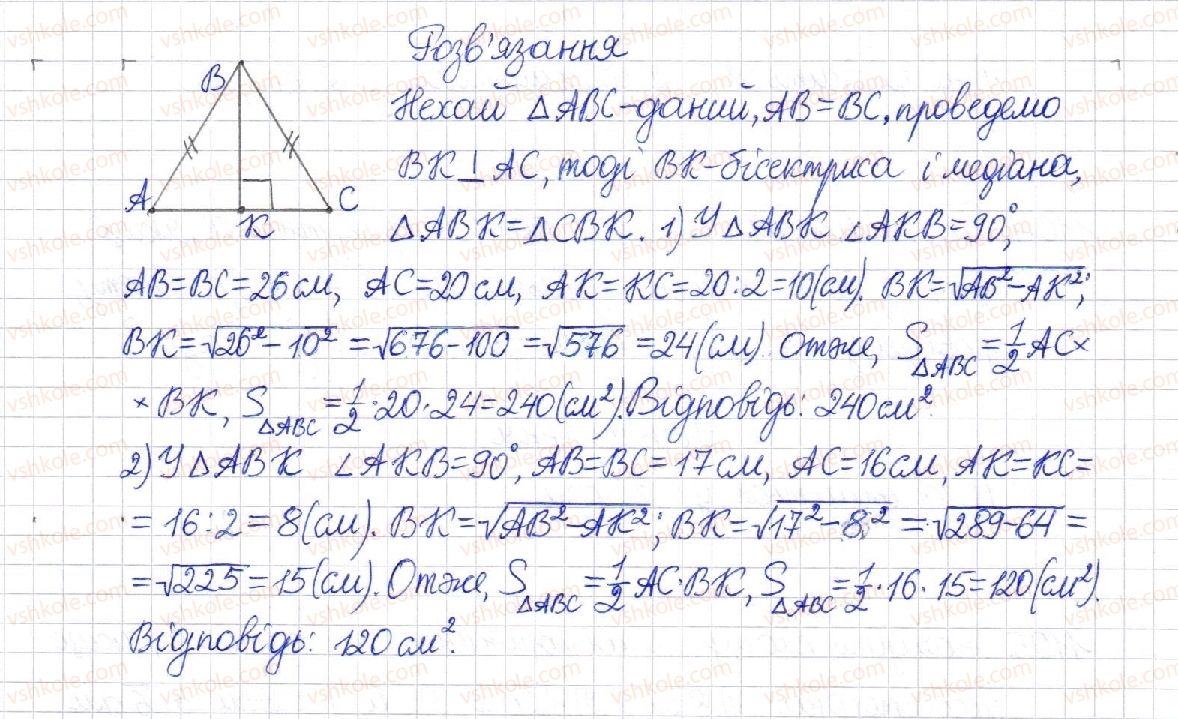 Розв'язання
B
Нехай △ABC-даний, AB=BC, проведемо
BK⊥AC, тоді BK-бісектриса і медіана,
A K C
△ABK=△CBK. 1) У △ABK ∠AKB=90°,
AB=BC=26см, AC=20см, AK=KC=20:2=10(см). BK=√(AB²-AK²);
BK=√(26²-10²)=√(676-100)=√576=24(см). Отже, S△ABC=1/2 AC×
×BK, S△ABC=1/2·20·24=240(см²). Відповідь: 240см².
2) У △ABK ∠AKB=90°, AB=BC=17см, AC=16см, AK=KC=
=16:2=8(см). BK=√(AB²-AK²); BK=√(17²-8²)=√(289-64)=
=√225=15(см). Отже, S△ABC=1/2 AC·BK, S△ABC=1/2·16·15=120(см²).
Відповідь: 120см².
vshkole.com